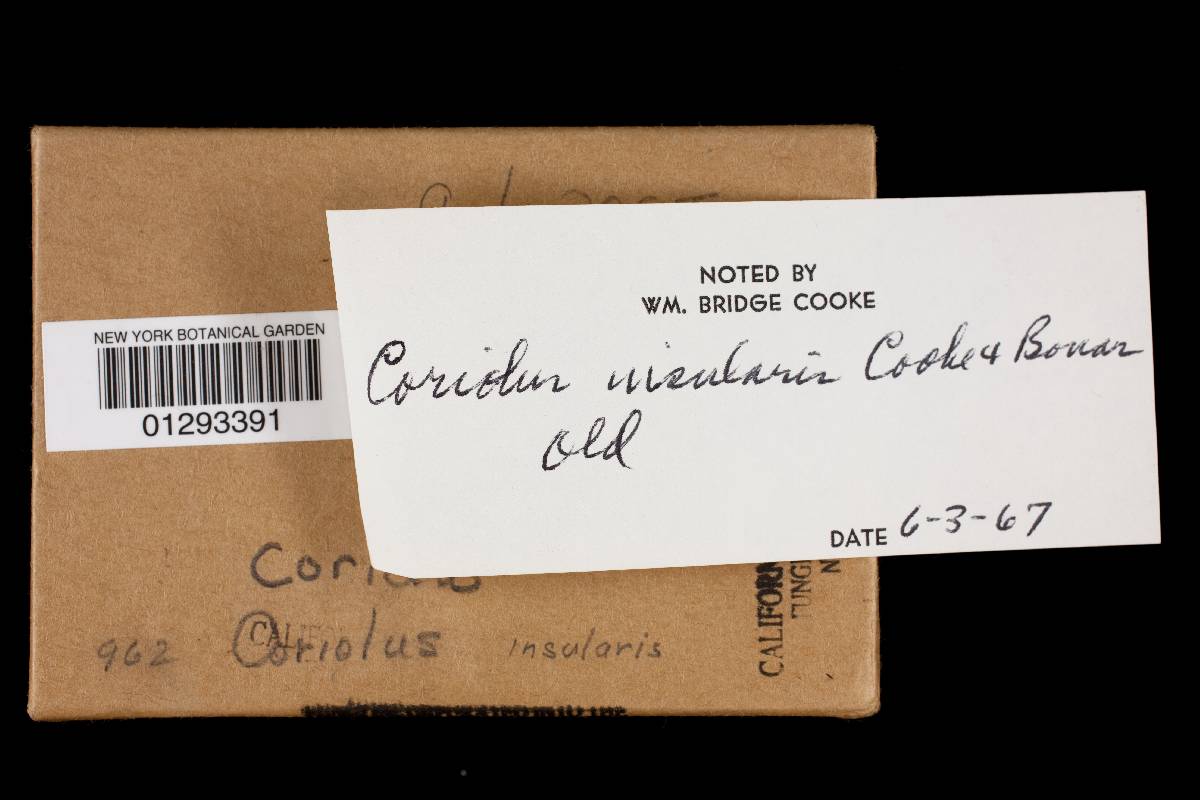 NOTED BY
WM. BRIDGE COOKE
Coriolus insularis Cooke & Bonar
old
DATE 6-3-67
NEW YORK BOTANICAL GARDEN
01293391
962 Coriolus insularis
CALIFORN
FUNGI
N